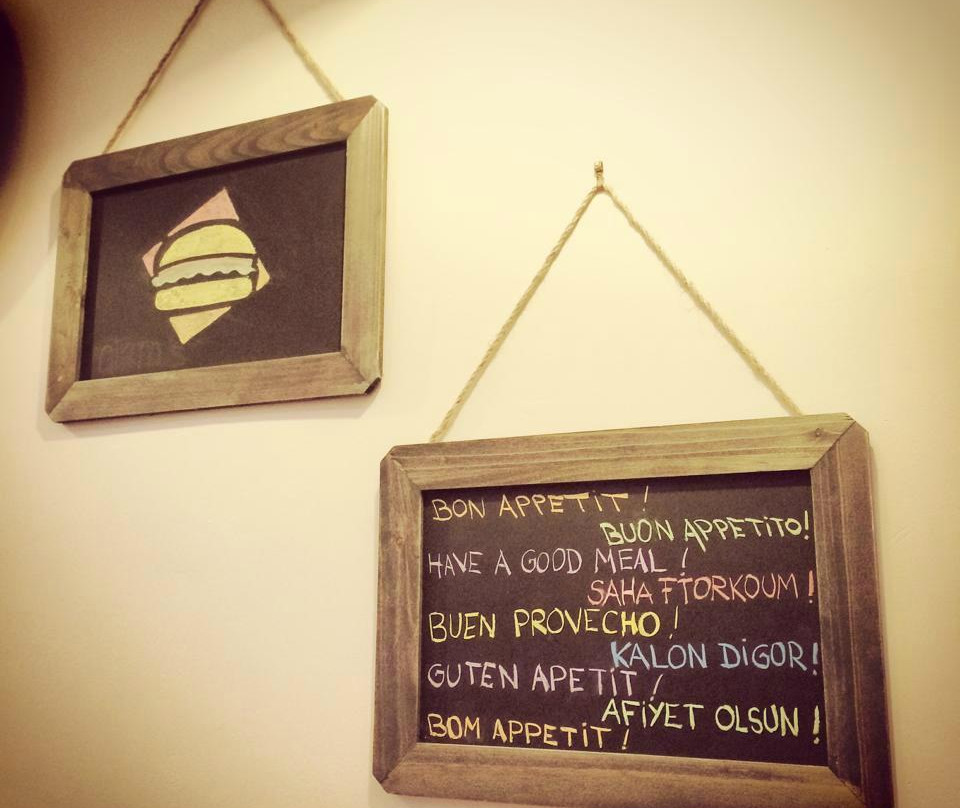 BON APPETIT !
BUON APPETITO!
HAVE A GOOD MEAL !
SAHA FTORKOUM !
BUEN PROVECHO !
KALON DIGOR!
GUTEN APETIT !
AFIYET OLSUN !
BOM APPETIT !